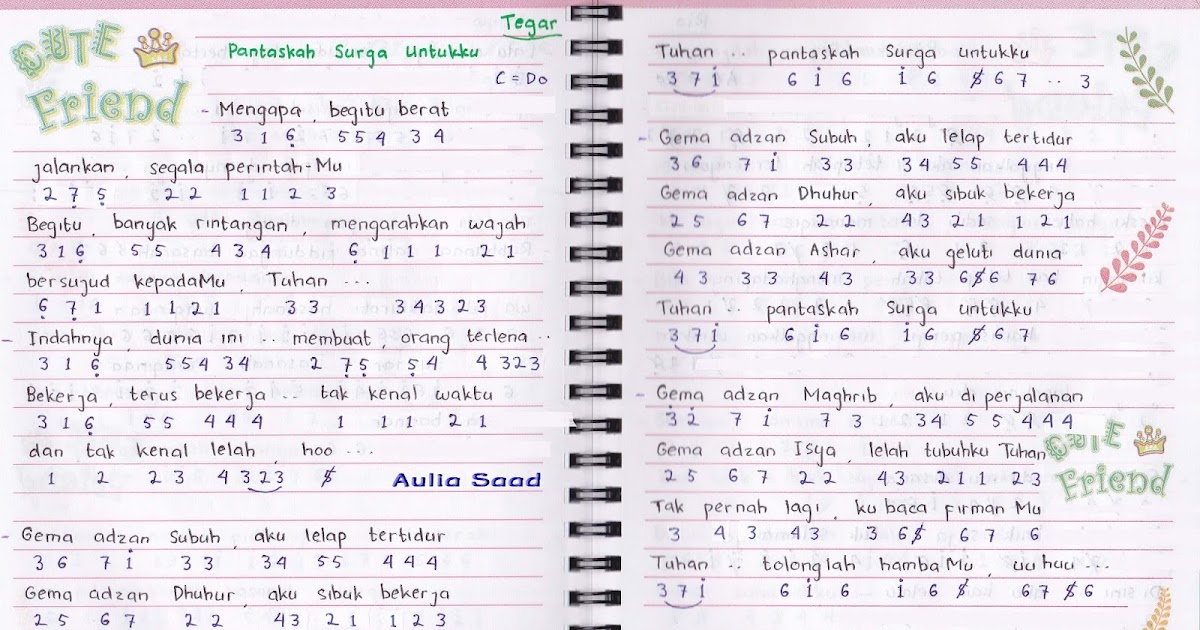 CUTE Friend
Tegar
Pantaskah Surga Untukku
C = Do
- Mengapa, begitu berat
3 1 6̣ 5 5 4 3 4
jalankan, segala perintah-Mu
2 7̣ 5̣ 2 2 1 1 2 3
Begitu, banyak rintangan, mengarahkan wajah
3 1 6̣ 5 5 4 3 4 6̣ 1 1 1 2 1
bersujud kepadaMu Tuhan ...
6̣ 7̣ 1 1 1 2 1 3 3 3 4 3 2 3
- Indahnya, dunia ini .. membuat, orang terlena ..
3 1 6̣ 5 5 4 3 4 2 7̣ 5̣ 5̣ 4 4 3 2 3
Bekerja, terus bekerja .. tak kenal waktu
3 1 6̣ 5 5 4 4 4 1 1 1 2 1
dan tak kenal lelah, hoo ...
1 2 2 3 4 3 2 3 5̸
Aulia Saad
- Gema adzan Subuh, aku lelap tertidur
3 6 7 1̇ 3 3 3 4 5 5 4 4 4
Gema adzan Dhuhur, aku sibuk bekerja
2 5 6 7 2 2 4 3 2 1 1 2 3
Tuhan pantaskah Surga untukku
3 7 1̇ 6 1̇ 6 1̇ 6 5̸ 6 7 .. 3
- Gema adzan Subuh, aku lelap tertidur
3 6 7 1̇ 3 3 3 4 5 5 4 4 4
Gema adzan Dhuhur, aku sibuk bekerja
2 5 6 7 2 2 4 3 2 1 1 2 1
Gema adzan Ashar, aku geluti dunia
4 3 3 3 4 3 3 3 6 5̸ 6 7 6
Tuhan .. pantaskah Surga untukku
3 7 1̇ 6 1̇ 6 1̇ 6 5̸ 6 7
- Gema adzan Maghrib, aku di perjalanan
3̇ 2̇ 7 1̇ 7 3 3 4 5 5 4 4 4
Gema adzan Isya, lelah tubuhku Tuhan
2 5 6 7 2 2 4 3 2 1 1 2 3
CUTE Friend
Tak pernah lagi, ku baca firman Mu
3 4 3 4 3 3 6 5̸ 6 7 6
Tuhan .. tolonglah hambaMu, uu huu ...
3 7 1̇ 6 1̇ 6 1̇ 6 5̸ 6 7 5̸ 6